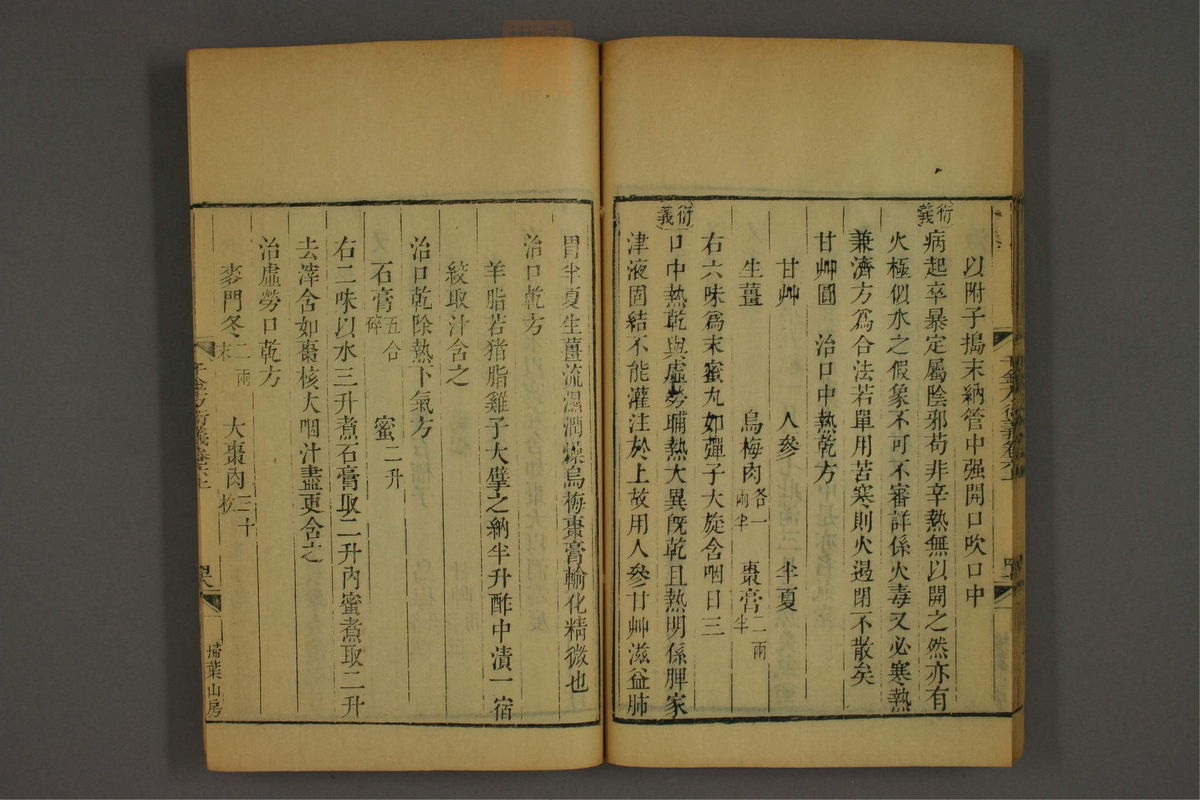 以附子搗末納管中强開口吹口中
衍義
病起卒暴定屬陰邪苟非辛熱無以開之然亦有
火極似水之假象不可不審詳係火毒又必寒熱
兼濟方爲合法若單用苦寒則火遏閉不散矣
甘艸圓 治口中熱乾方
甘艸 人參 半夏
生薑 烏梅肉各一兩半 棗膏二兩半
右六味爲末蜜丸如彈子大旋含咽日三
衍義
口中熱乾與虛勞晡熱大異旣乾且熱明係脾家
津液固結不能灌注於上故用人參甘艸滋益肺
胃半夏生薑流濕潤燥烏梅棗膏輸化精微也
治口乾方
羊脂若猪脂雞子大擘之納半升酢中漬一宿
絞取汁含之
治口乾除熱下氣方
石膏五合碎 蜜二升
右二味以水三升煮石膏取二升內蜜煮取二升
去滓含如棗核大咽汁盡更含之
治虛勞口乾方
麥門冬二兩末 大棗肉三十枚
千金方衍義卷六上
掃葉山房